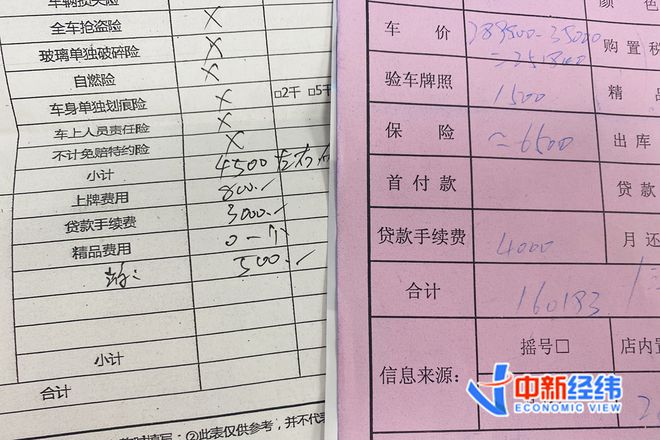 车辆损失险
全车抢盗险 X
玻璃单独破碎险 X
自燃险 X
车身单独划痕险 X □2千 □5千
车上人员责任险 X
不计免赔特约险 X
小计 4500 左右
上牌费用 800.
贷款手续费 3000.
精品费用 0一个
500.
小计
合计
②此表仅供参考，并不代表
颜色
车价 289800-35000 购置税
=251800
验车牌照 1500 精品
保险 ≈6500 出库
首付款 贷款
贷款手续费 4000 月还
合计 160183
信息来源： 摇号□ 店内置
中新经纬
ECONOMIC VIEW